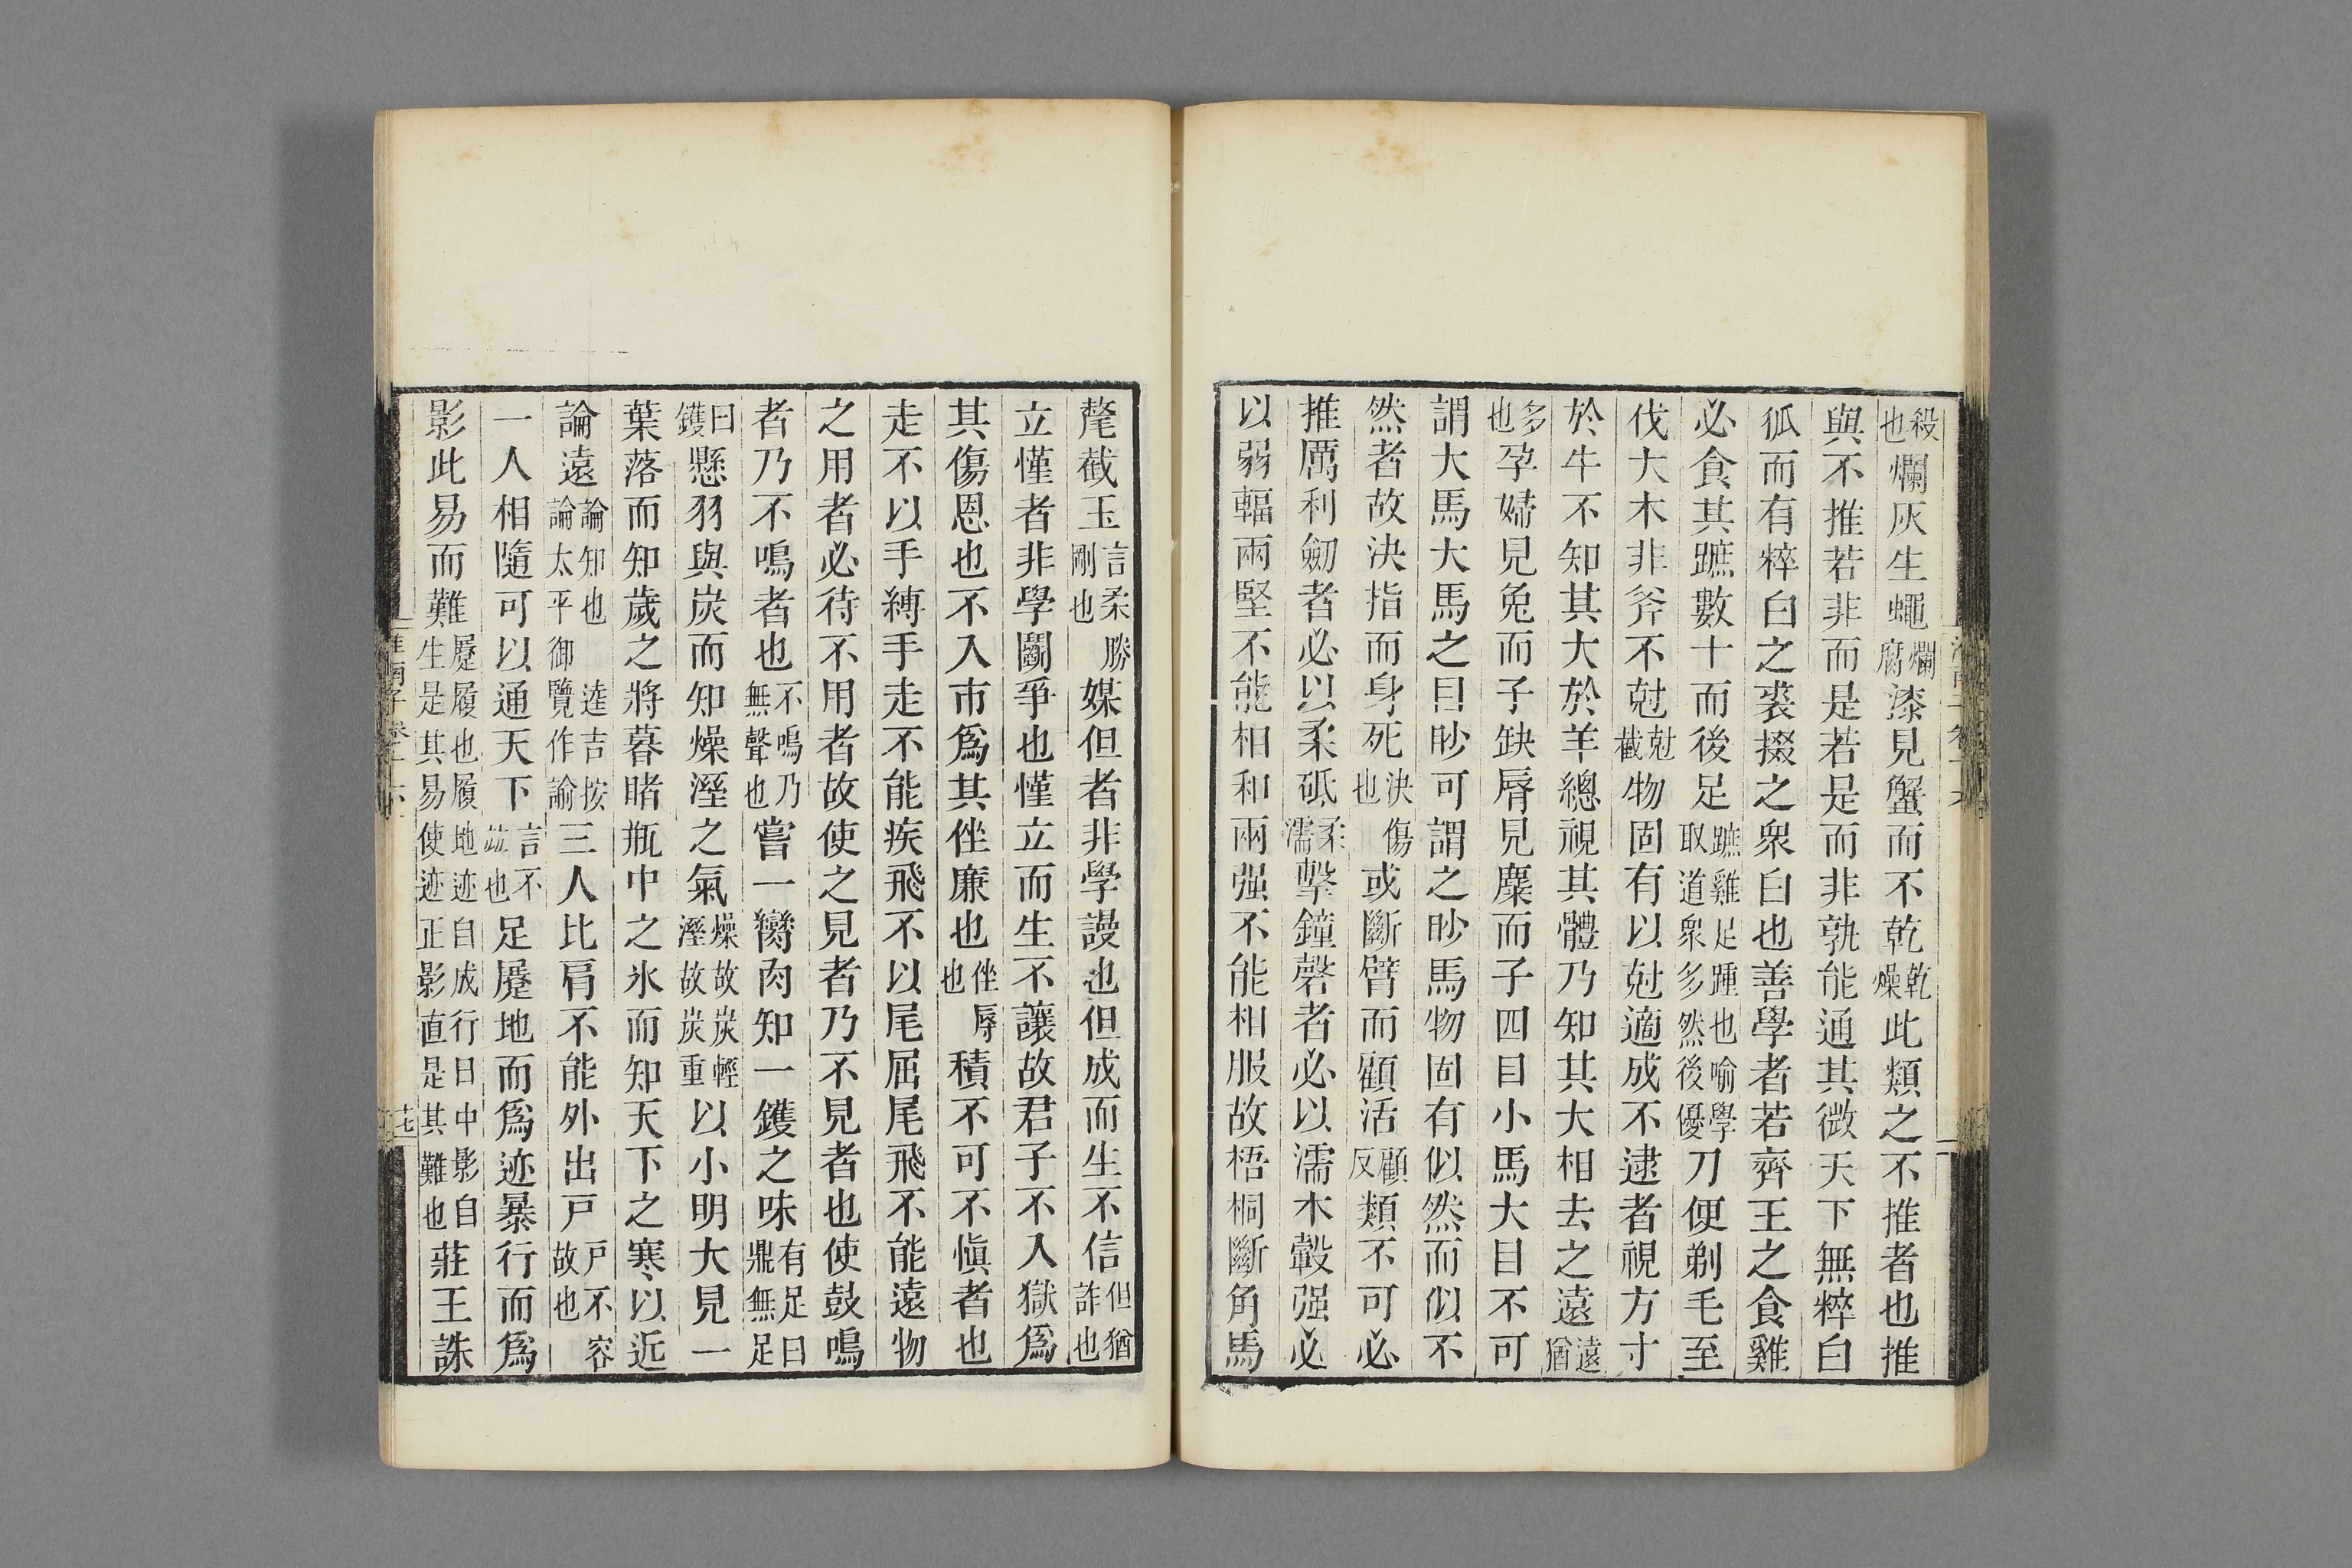 殺也爛灰生蠅爛腐漆見蟹而不乾乾燥此類之不推者也推
與不推若非而是若是而非孰能通其微天下無粹白
狐而有粹白之裘掇之衆白也善學者若齊王之食雞
必食其蹠數十而後足蹠雞足踵也喻學取道衆多然後優刀便剃毛至
伐大木非斧不尅尅截物固有以尅適成不逮者視方寸
於牛不知其大於羊總視其體乃知其大相去之遠遠猶
多也孕婦見兔而子缺脣見麋而子四目小馬大目不可
謂大馬大馬之目眇可謂之眇馬物固有似然而似不
然者故決指而身死決傷也或斷臂而顧活顧反類不可必
推厲利劒者必以柔砥柔濡擊鐘磬者必以濡木轂强必
以弱輻兩堅不能相和兩强不能相服故梧桐斷角馬
氂截玉言柔勝剛也媒但者非學謾也但成而生不信但猶詐也
立慬者非學鬬爭也慬立而生不讓故君子不入獄爲
其傷恩也不入市爲其侳廉也侳辱也積不可不愼者也
走不以手縛手走不能疾飛不以尾屈尾飛不能遠物
之用者必待不用者故使之見者乃不見者也使鼓鳴
者乃不鳴者也不鳴乃無聲也嘗一臠肉知一鑊之味有足曰鼎無足
曰鑊懸羽與炭而知燥溼之氣燥故炭輕溼故炭重以小明大見一
葉落而知歲之將暮睹瓶中之氷而知天下之寒以近
論遠論知也逵吉按論太平御覽作諭三人比肩不能外出戸戸不容故也
一人相隨可以通天下言不也足蹍地而爲迹暴行而爲
影此易而難蹍履也履地迹自成行日中影自生是其易使迹正影直是其難也莊王誅
淮南子卷十六
十七